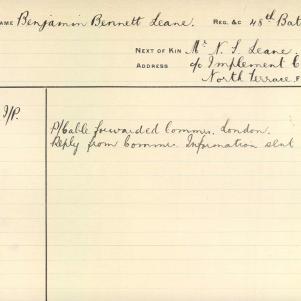 NAME Benjamin Bennett Leane. REG. &C 48th Bat
NEXT OF KIN Mr N. S. Leane.
ADDRESS c/o Implement C
North Terrace,
I/P.
P/Cable forwarded Commr. London.
Reply from Commr. Information sent